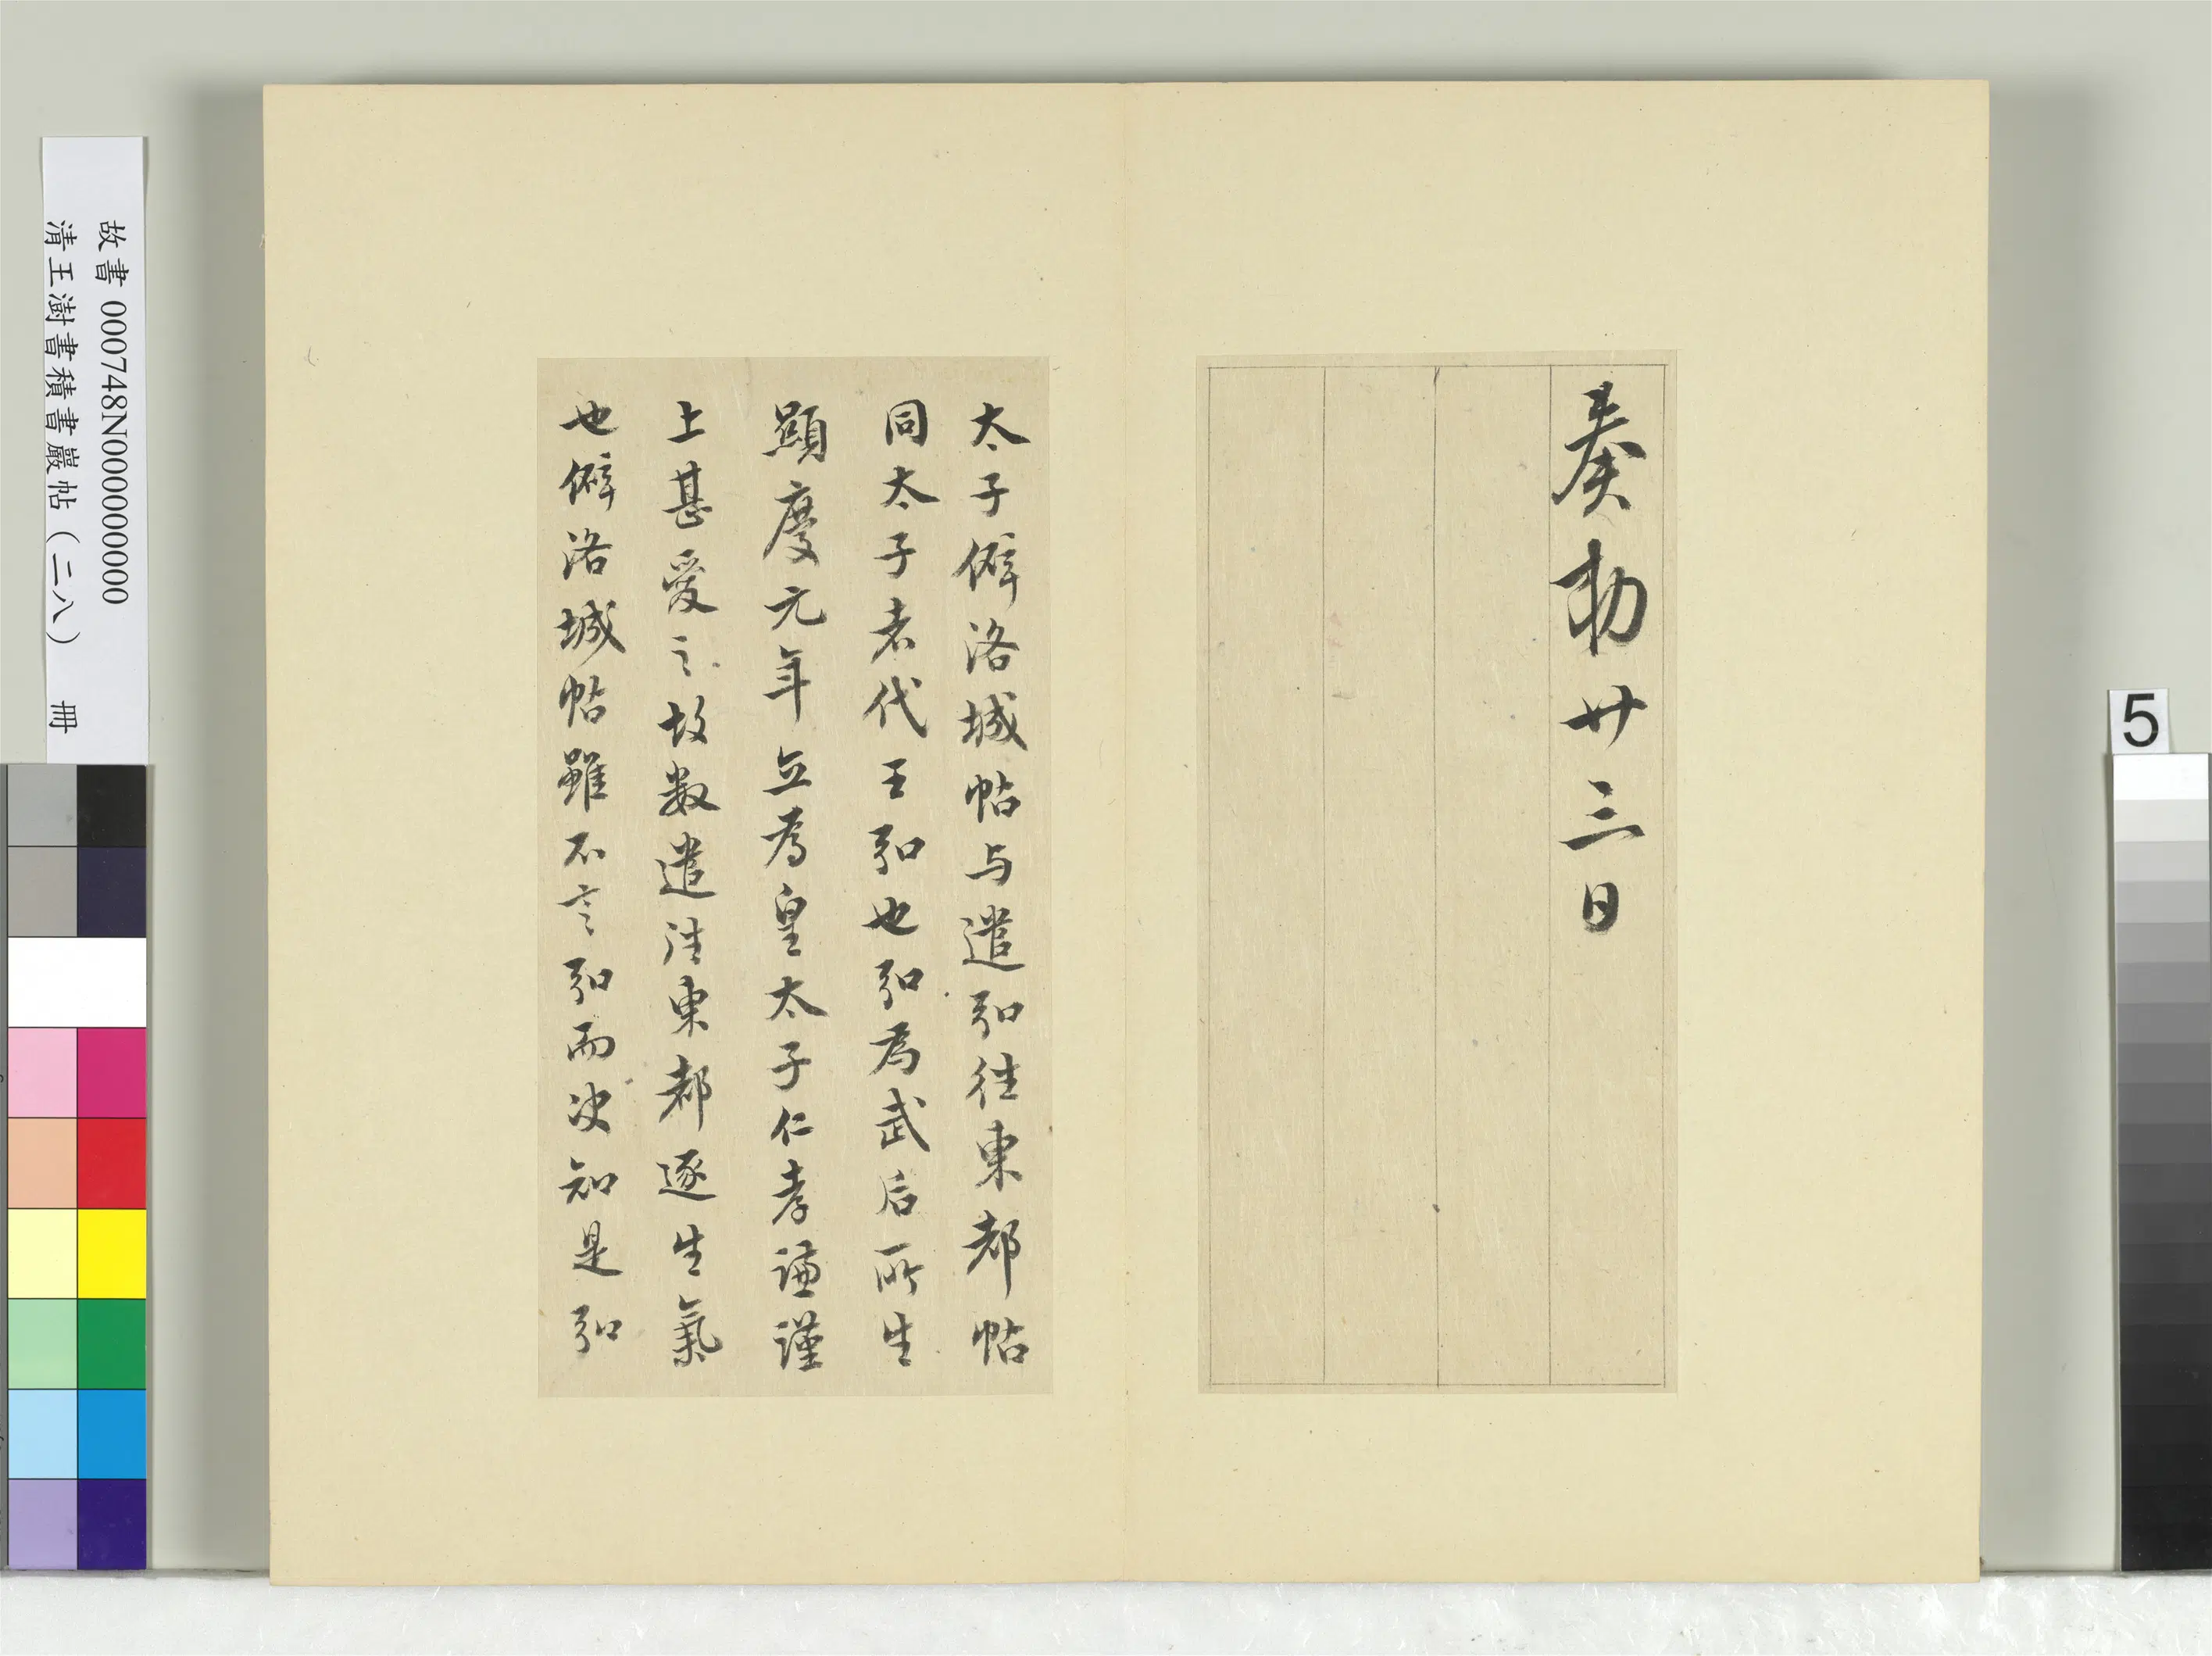 奏勅廿三日
太子僻洛城帖与遣弘往東都帖
同太子者代王弘也弘為武后所生
顯慶元年立為皇太子仁孝謙謹
上甚愛之故数遣往東都逐生氣
也僻洛城帖雖不言弘而決知是弘
故書 000748N000000000
清王澍書積書巖帖(二八) 冊
5